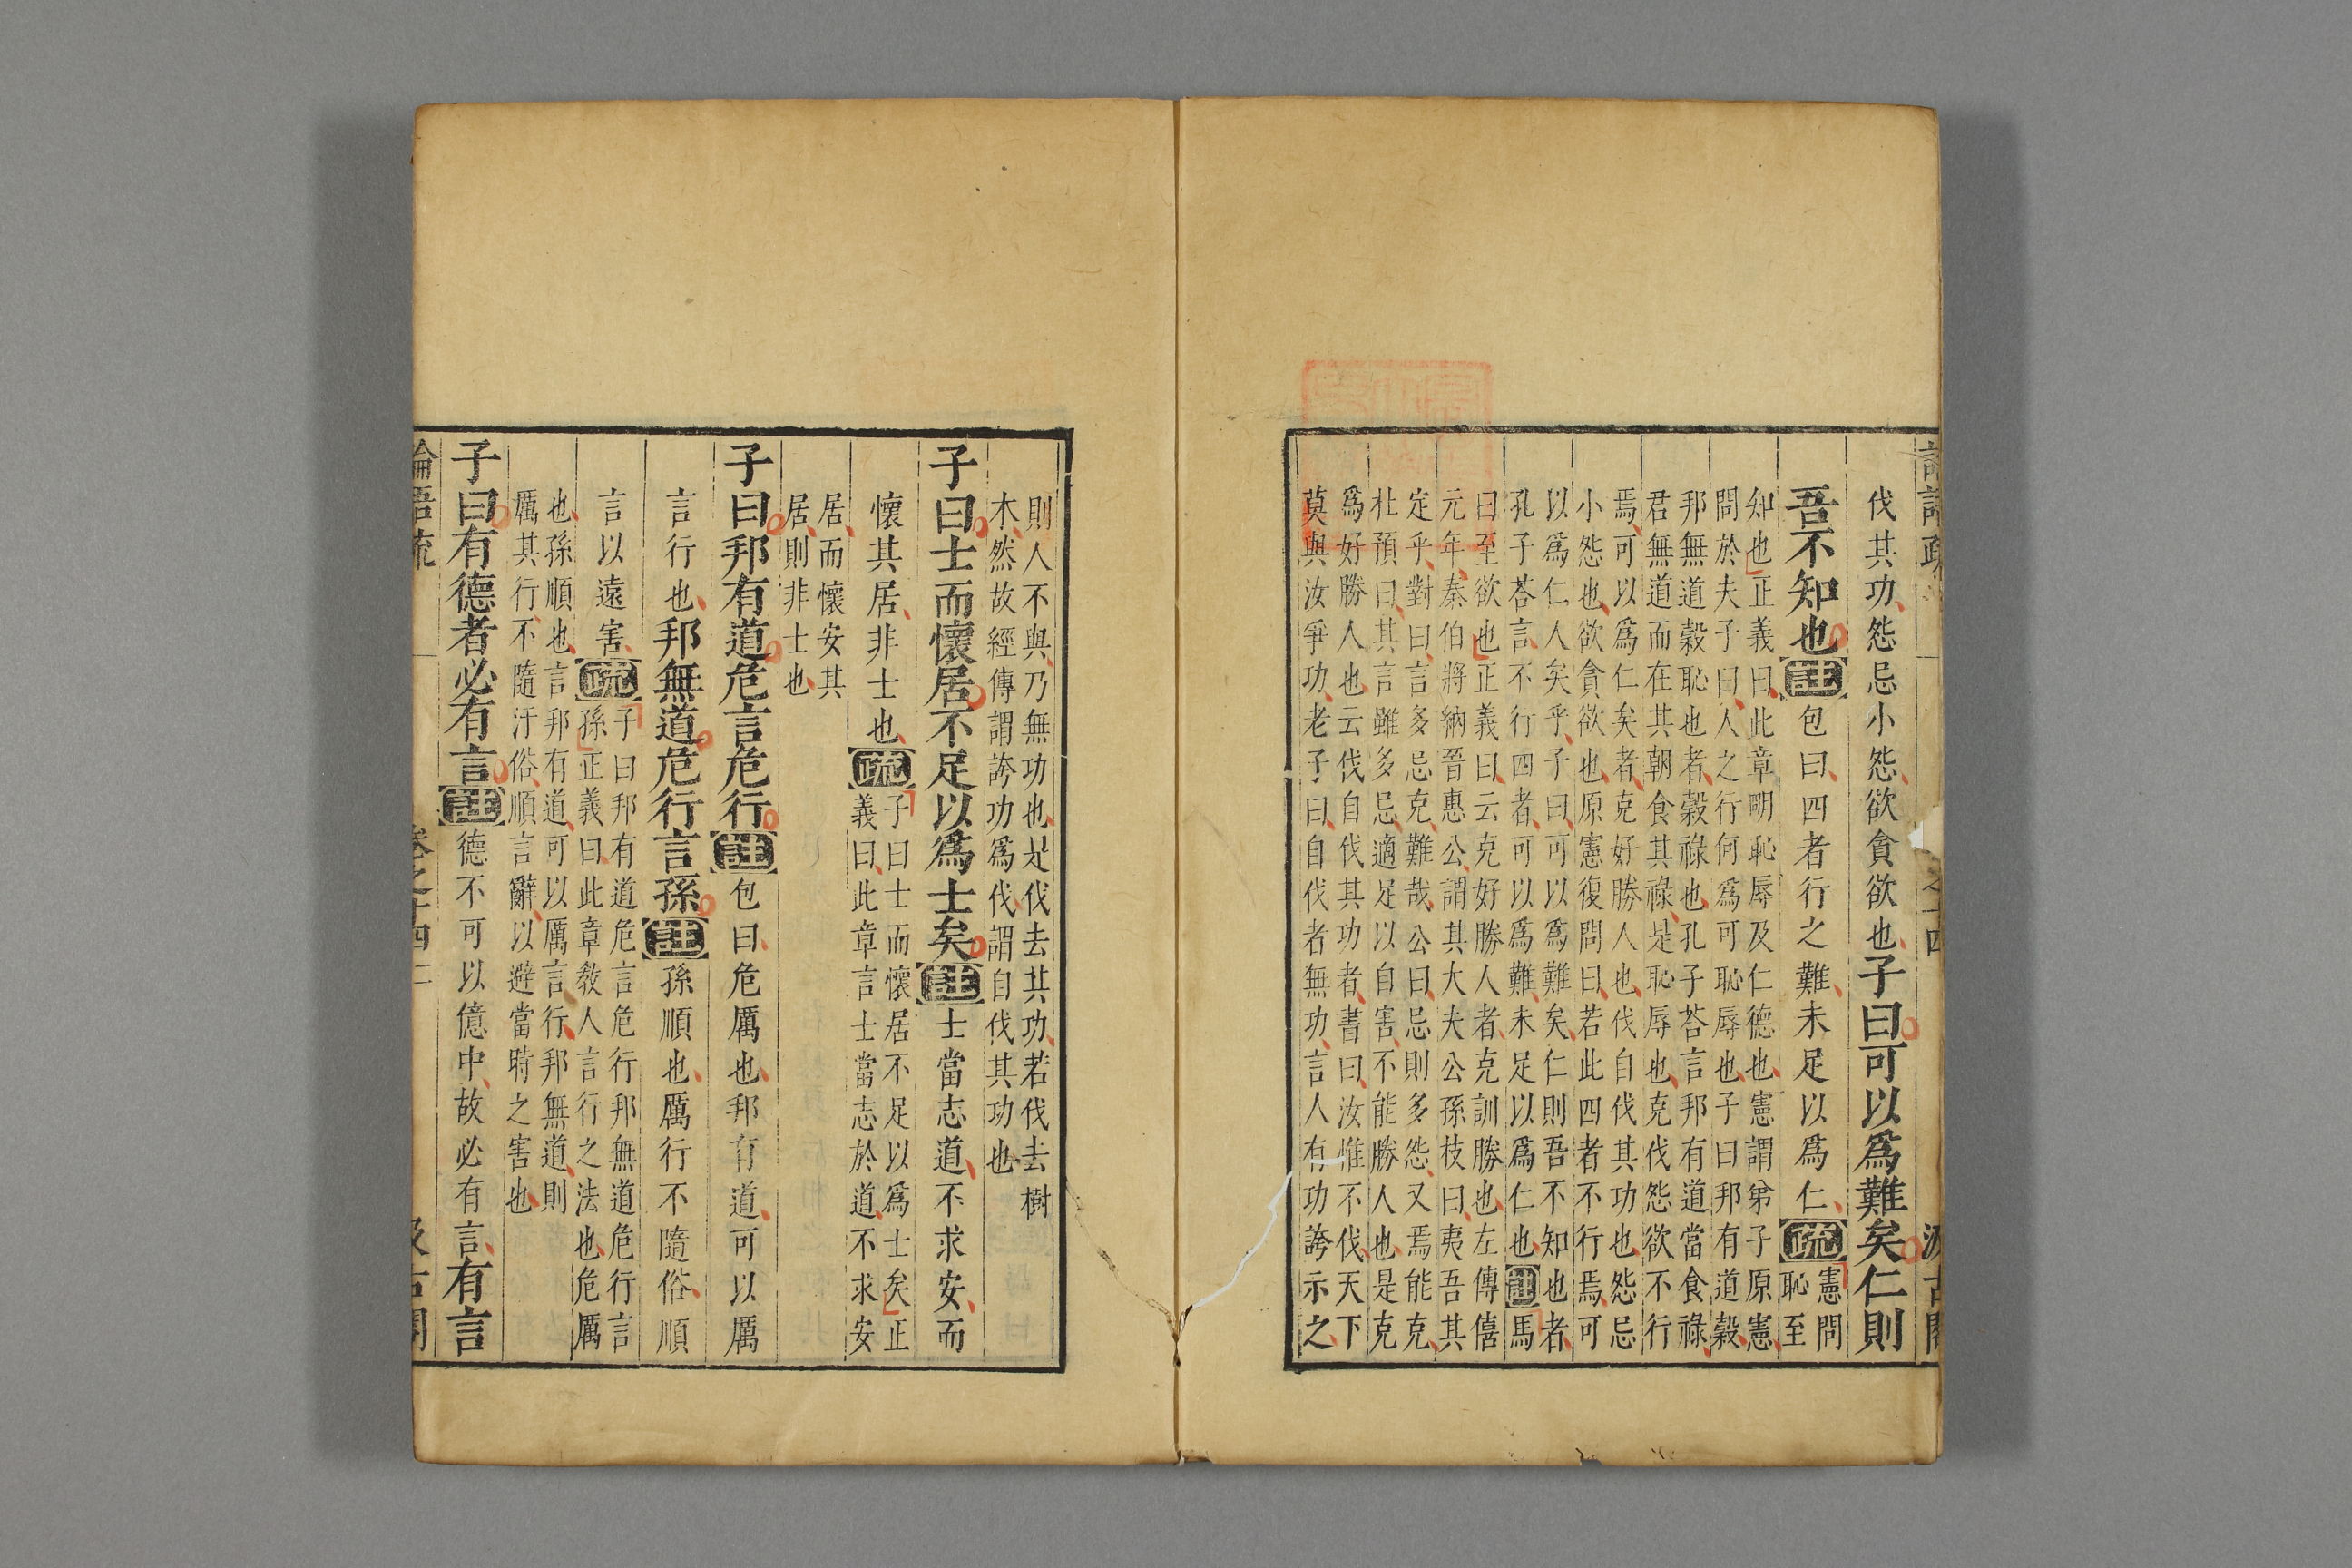 論語疏 之十四 汲古閣
伐其功怨忌小怨欲貪欲也子曰可以爲難矣仁則
吾不知也註包曰四者行之難未足以爲仁疏憲問
恥至
知也正義曰此章明恥辱及仁德也憲謂弟子原憲
問於夫子曰人之行何爲可恥辱也子曰邦有道穀
邦無道穀恥也者穀祿也孔子荅言邦有道當食祿
君無道而在其朝食其祿是恥辱也克伐怨欲不行
焉可以爲仁矣者克好勝人也伐自伐其功也怨忌
小怨也欲貪欲也原憲復問曰若此四者不行焉可
以爲仁人矣乎子曰可以爲難矣仁則吾不知也者
孔子荅言不行四者可以爲難未足以爲仁也註馬
曰至欲也正義曰云克好勝人者克訓勝也左傳僖
元年秦伯將納晉惠公謂其大夫公孫枝曰夷吾其
定乎對曰言多忌克難哉公曰忌則多怨又焉能克
杜預曰其言雖多忌適足以自害不能勝人也是克
爲好勝人也云伐自伐其功者書曰汝惟不伐天下
莫與汝爭功老子曰自伐者無功言人有功誇示之
則人不與乃無功也是伐去其功若伐去樹
木然故經傳謂誇功爲伐謂自伐其功也
子曰士而懷居不足以爲士矣註士當志道不求安而
懷其居非士也疏子曰士而懷居不足以爲士矣正
義曰此章言士當志於道不求安
居而懷安其
居則非士也
子曰邦有道危言危行註包曰危厲也邦有道可以厲
言行也邦無道危行言孫註孫順也厲行不隨俗順
言以遠害疏子曰邦有道危言危行邦無道危行言
孫正義曰此章教人言行之法也危厲
也孫順也言邦有道可以厲言行邦無道則
厲其行不隨汙俗順言辭以避當時之害也
子曰有德者必有言註德不可以億中故必有言有言
論語疏 卷之十四 二 汲古閣